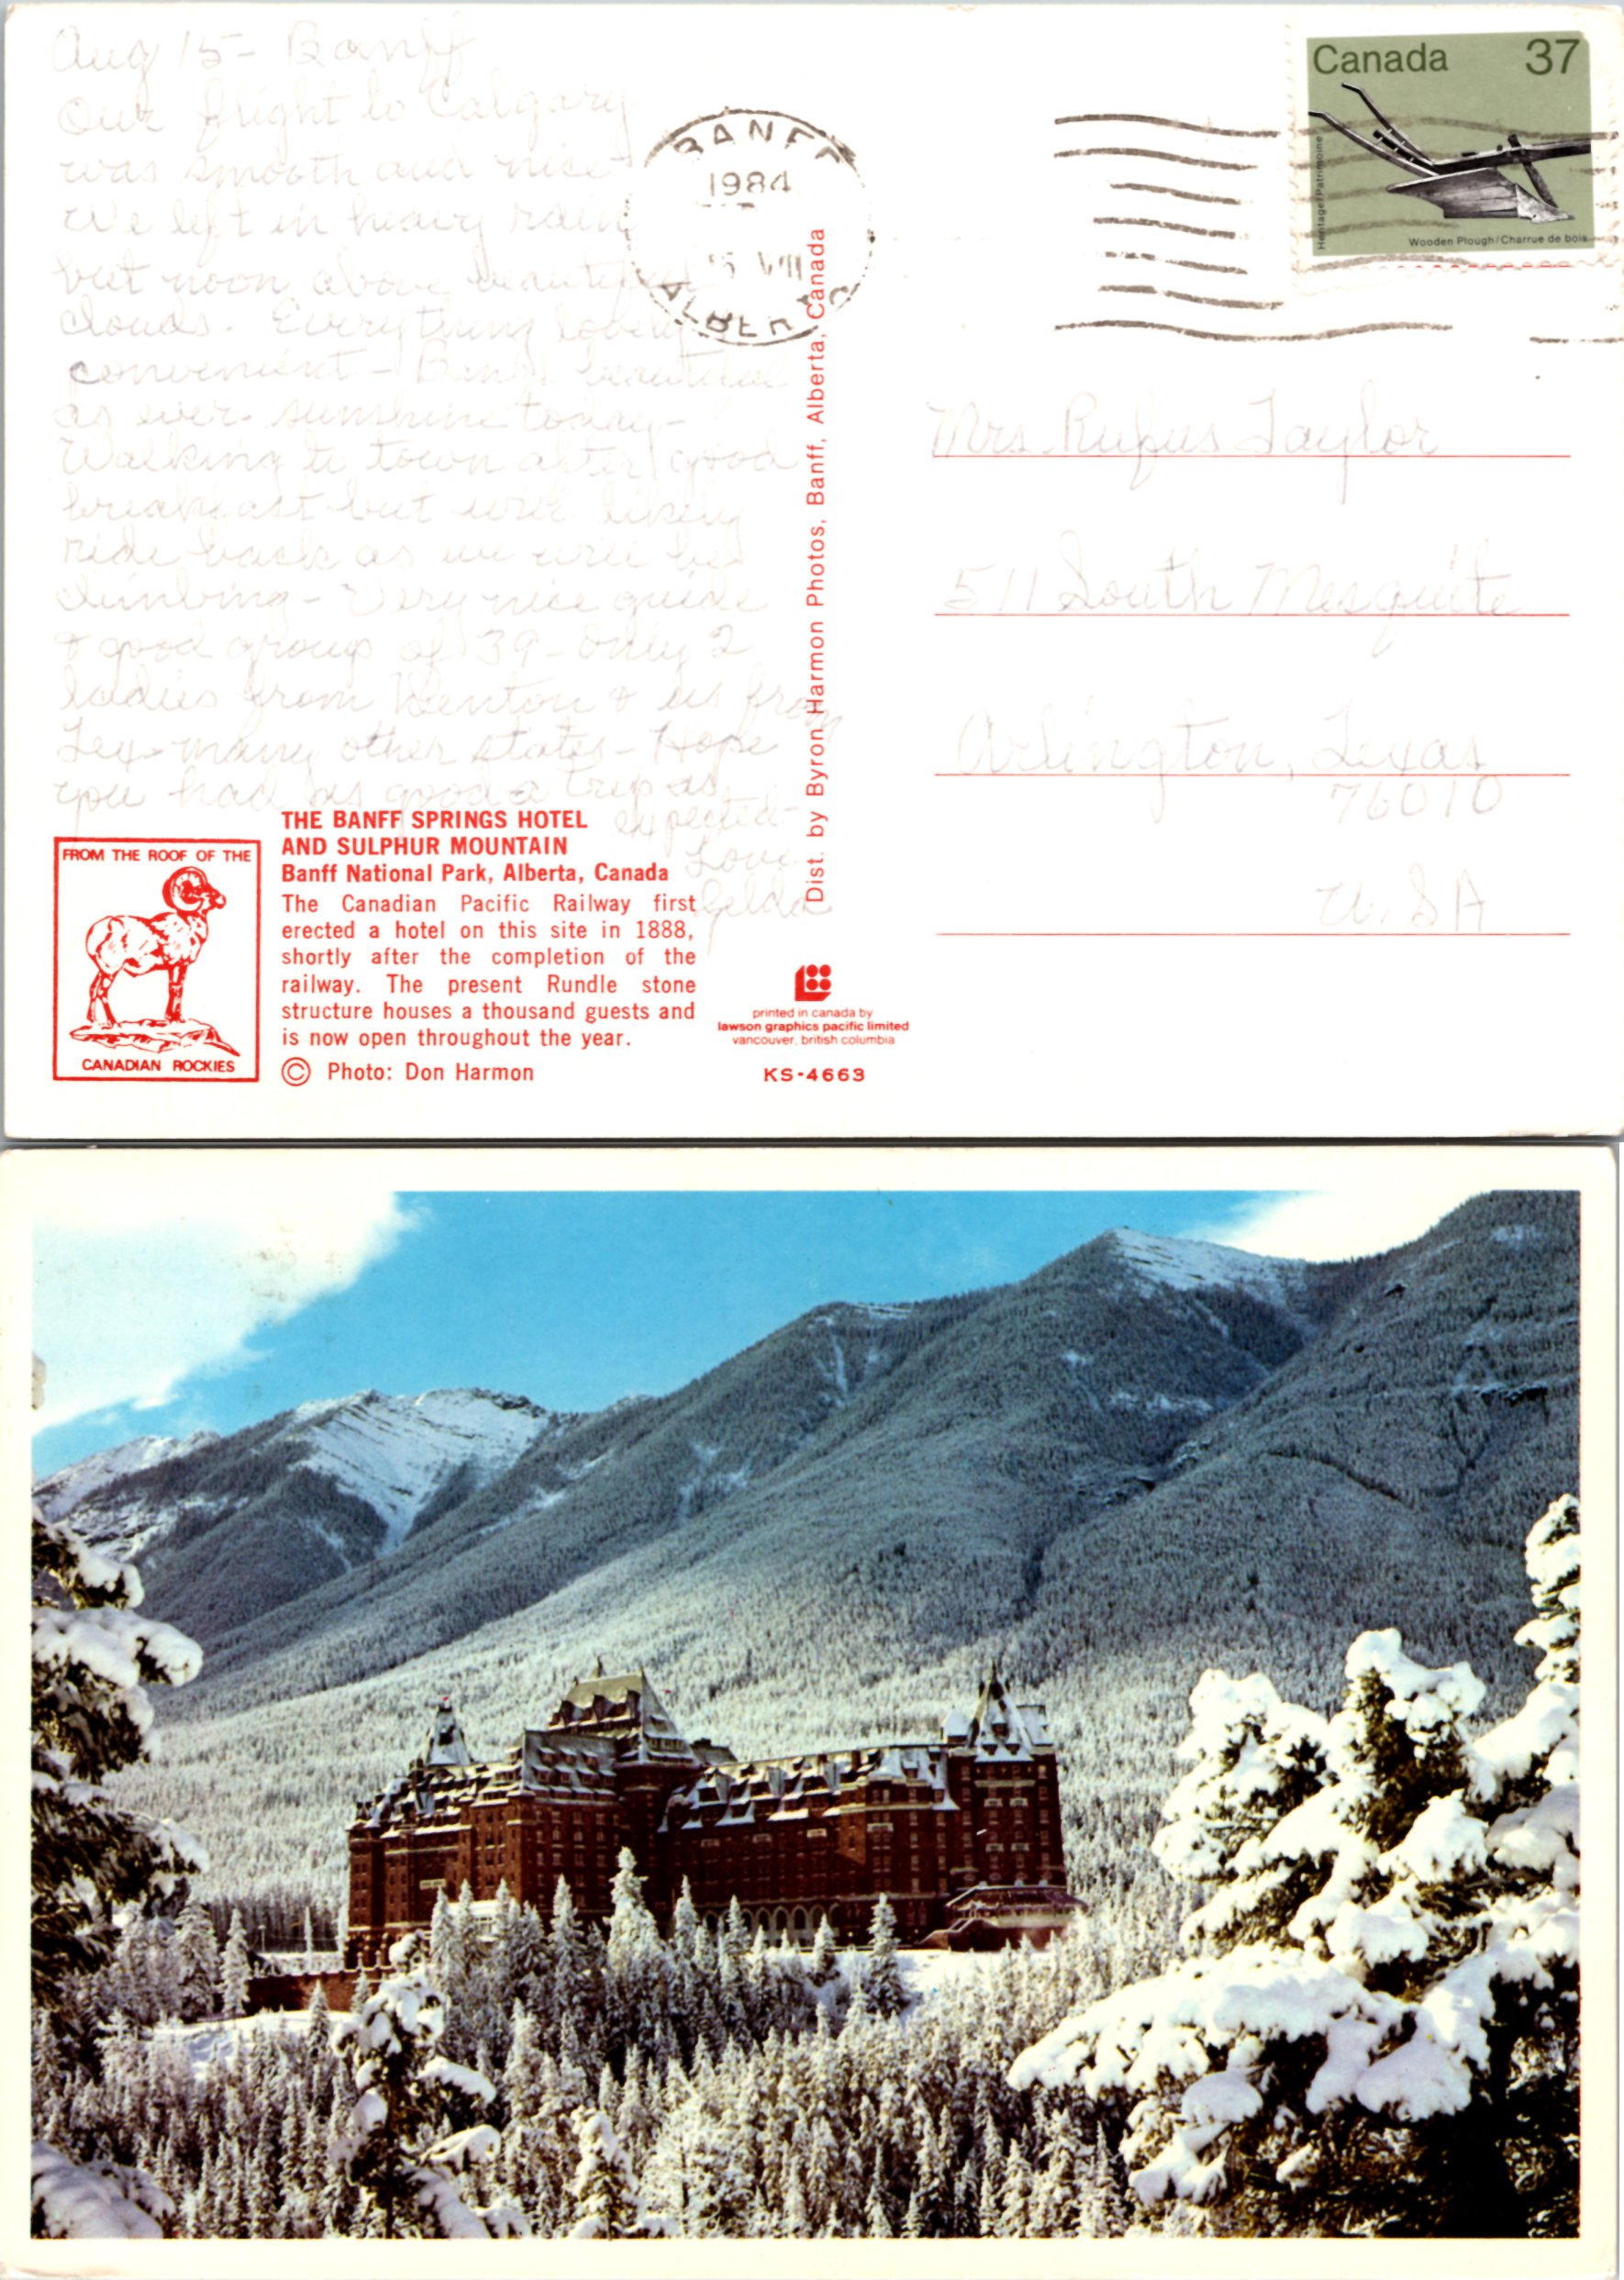 Aug 15- Banff
Our flight to Calgary
was smooth and nice
We left in heavy rain
but noon above beautiful
clouds. Everything lovely
convenient - Banff beautiful
as ever. sunshine today-
Walking to town after good
breakfast but will likely
ride back as we will be
climbing - Very nice guide
& good group of 39 - only 2
ladies from Denton & us from
Tex. many other states - Hope
you had as good a trip as
expected-
Love
Gelda
THE BANFF SPRINGS HOTEL
AND SULPHUR MOUNTAIN
Banff National Park, Alberta, Canada
The Canadian Pacific Railway first
erected a hotel on this site in 1888,
shortly after the completion of the
railway. The present Rundle stone
structure houses a thousand guests and
is now open throughout the year.
© Photo: Don Harmon
FROM THE ROOF OF THE
CANADIAN ROCKIES
Dist. by Byron Harmon Photos, Banff, Alberta, Canada
printed in canada by
lawson graphics pacific limited
vancouver, british columbia
KS-4663
BANFF
1984
15 VIII
ALBERTA
Canada 37
Heritage/Patrimoine
Wooden Plough/Charrue de bois
Mrs. Rufus Taylor
511 South Mesquite
Arlington, Texas
76010
U.S.A